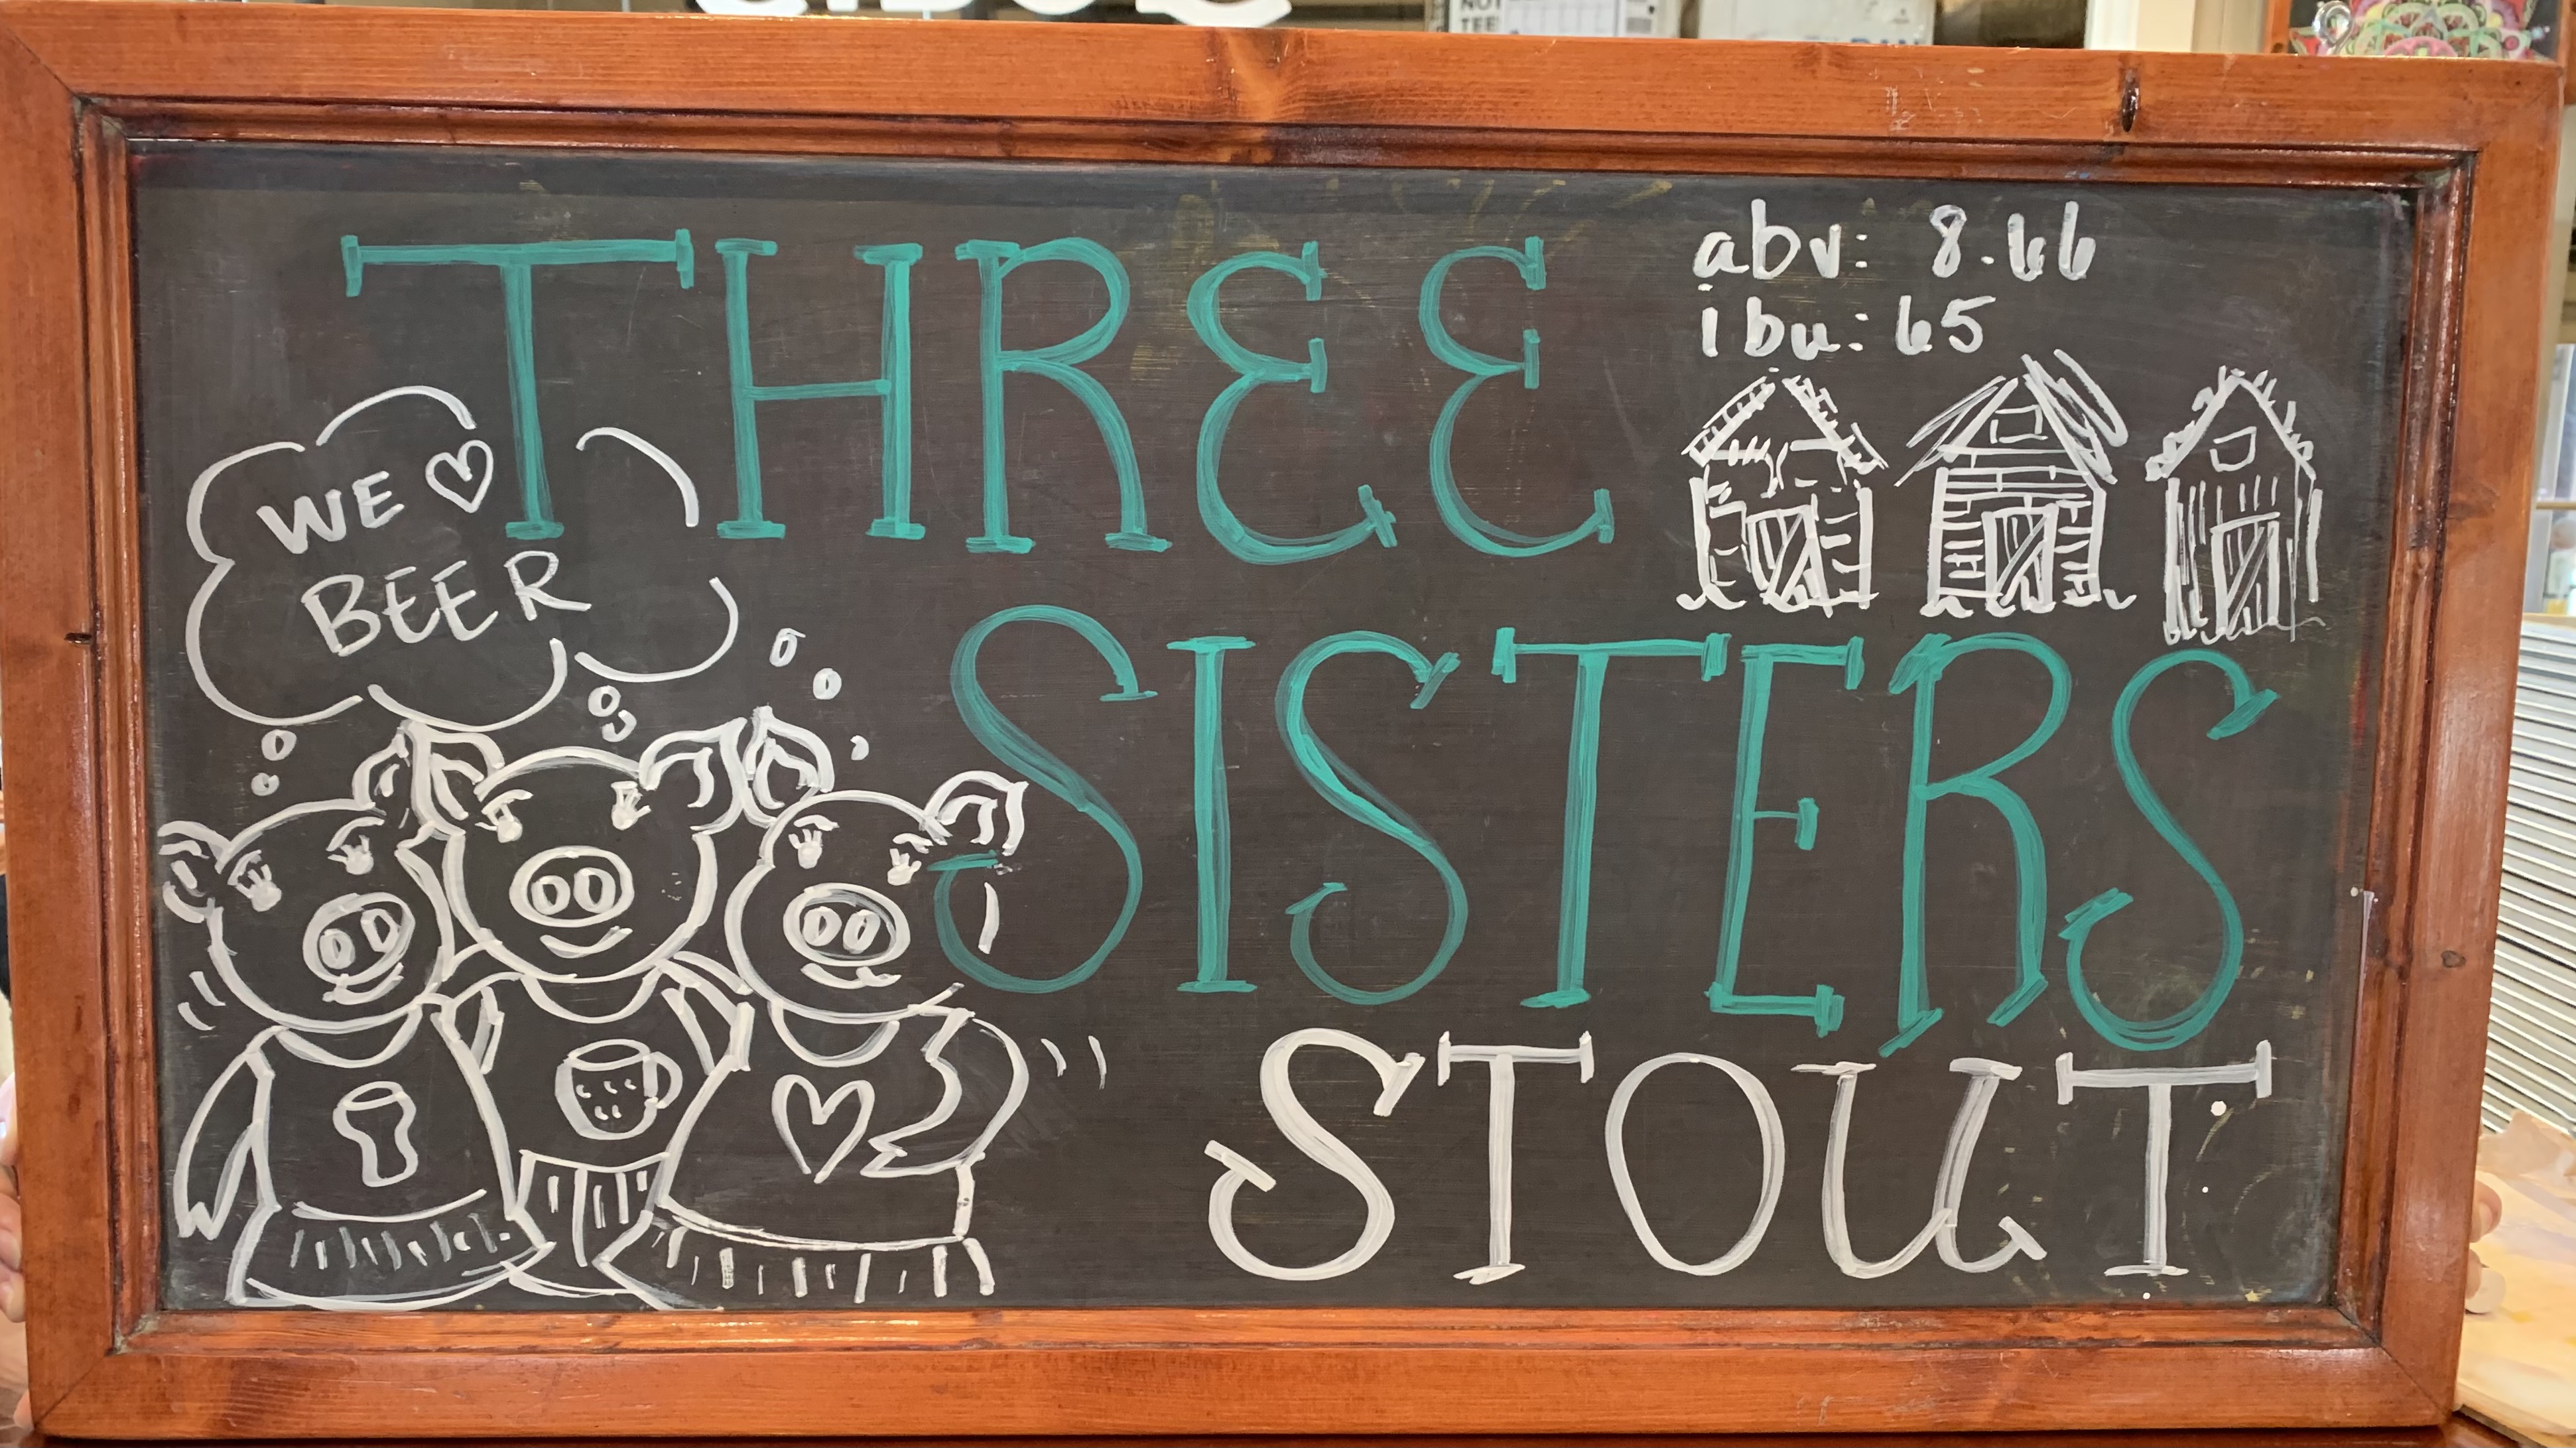 THREE
SISTERS
STOUT
abv: 8.66
ibu: 65
WE ♡
BEER